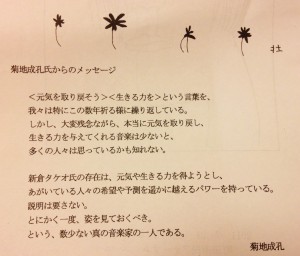 菊地成孔氏からのメッセージ
＜元気を取り戻そう＞＜生きる力を＞という言葉を、
我々は特にこの数年祈る様に繰り返している。
しかし、大変残念ながら、本当に元気を取り戻し、
生きる力を与えてくれる音楽は少ないと、
多くの人々は思っているかも知れない。
新倉タケオ氏の存在は、元気や生きる力を得ようとし、
あがいている人々の希望や予測を遥かに越えるパワーを持っている。
説明は要さない。
とにかく一度、姿を見ておくべき。
という、数少ない真の音楽家の一人である。
菊地成孔